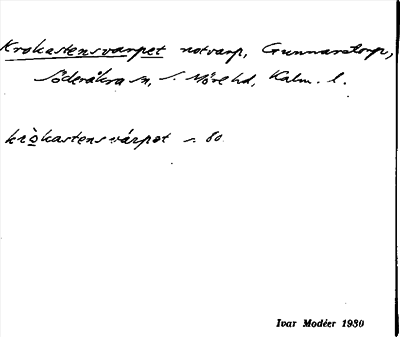 Krokastensvarpet notvarp, Gunnarstorp,
Söderåkra sn, S. Möre hd, Kalm. l.
kròkastensvárpət s. 80
Ivar Modéer 1930